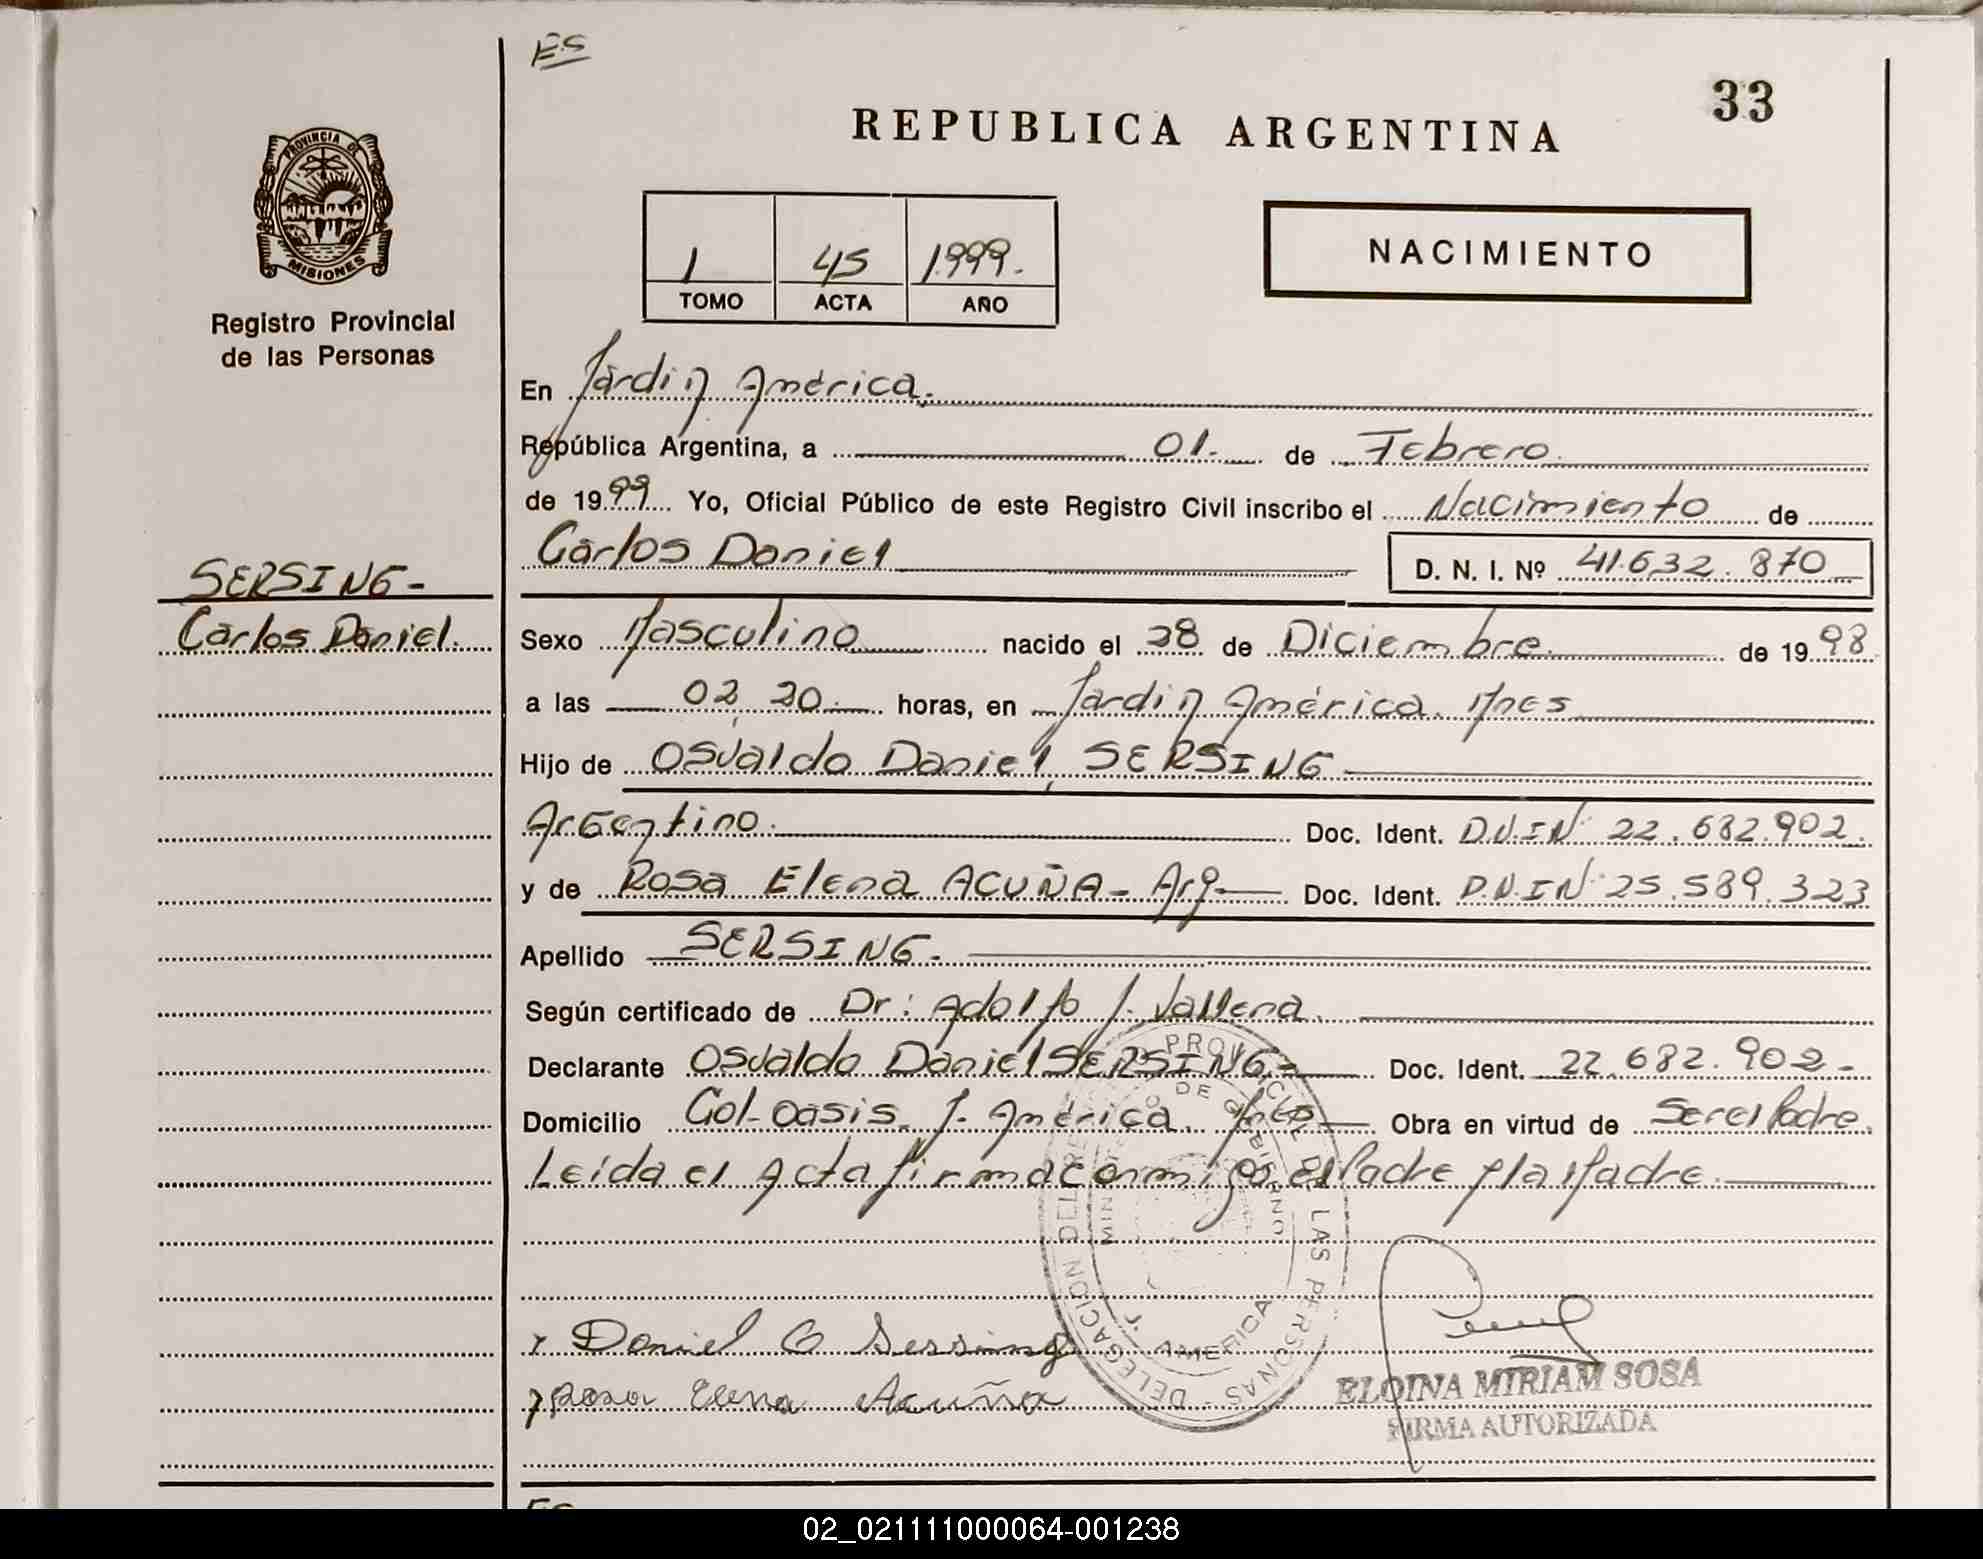 ES
33
REPUBLICA ARGENTINA
PROVINCIA DE
MISIONES
1 45 1.999.
TOMO ACTA AÑO
NACIMIENTO
Registro Provincial
de las Personas
En Jardin América.
República Argentina, a 01. de Febrero.
de 1999. Yo, Oficial Público de este Registro Civil inscribo el Nacimiento de
Carlos Daniel D. N. I. Nº 41.632.870
SERSING-
Carlos Daniel.
Sexo Masculino nacido el 28 de Diciembre. de 1998.
a las 02,20. horas, en Jardin América. Mnes
Hijo de Osvaldo Daniel SERSING
Argentino. Doc. Ident. D.N.I Nº 22.682.902.
y de Rosa Elena ACUÑA- Arg- Doc. Ident. D.N.I Nº 25.589.323
Apellido SERSING.
Según certificado de Dr: Adolfo J.
Declarante Osvaldo Daniel SERSING- Doc. Ident. 22.682.902-
Domicilio Col-Oasis. J. América. Mnes Obra en virtud de Ser el Padre.
Leída el Acta firma conmigo el Padre y la Madre.
DELEGACION DEL REG. PROVINCIAL DE LAS PERSONAS
MINISTERIO DE GOBIERNO
J. AMERICA
Daniel O Sersing
Rosa Elena Acuña
ELOINA MIRIAM SOSA
FIRMA AUTORIZADA
ES
02_021111000064-001238